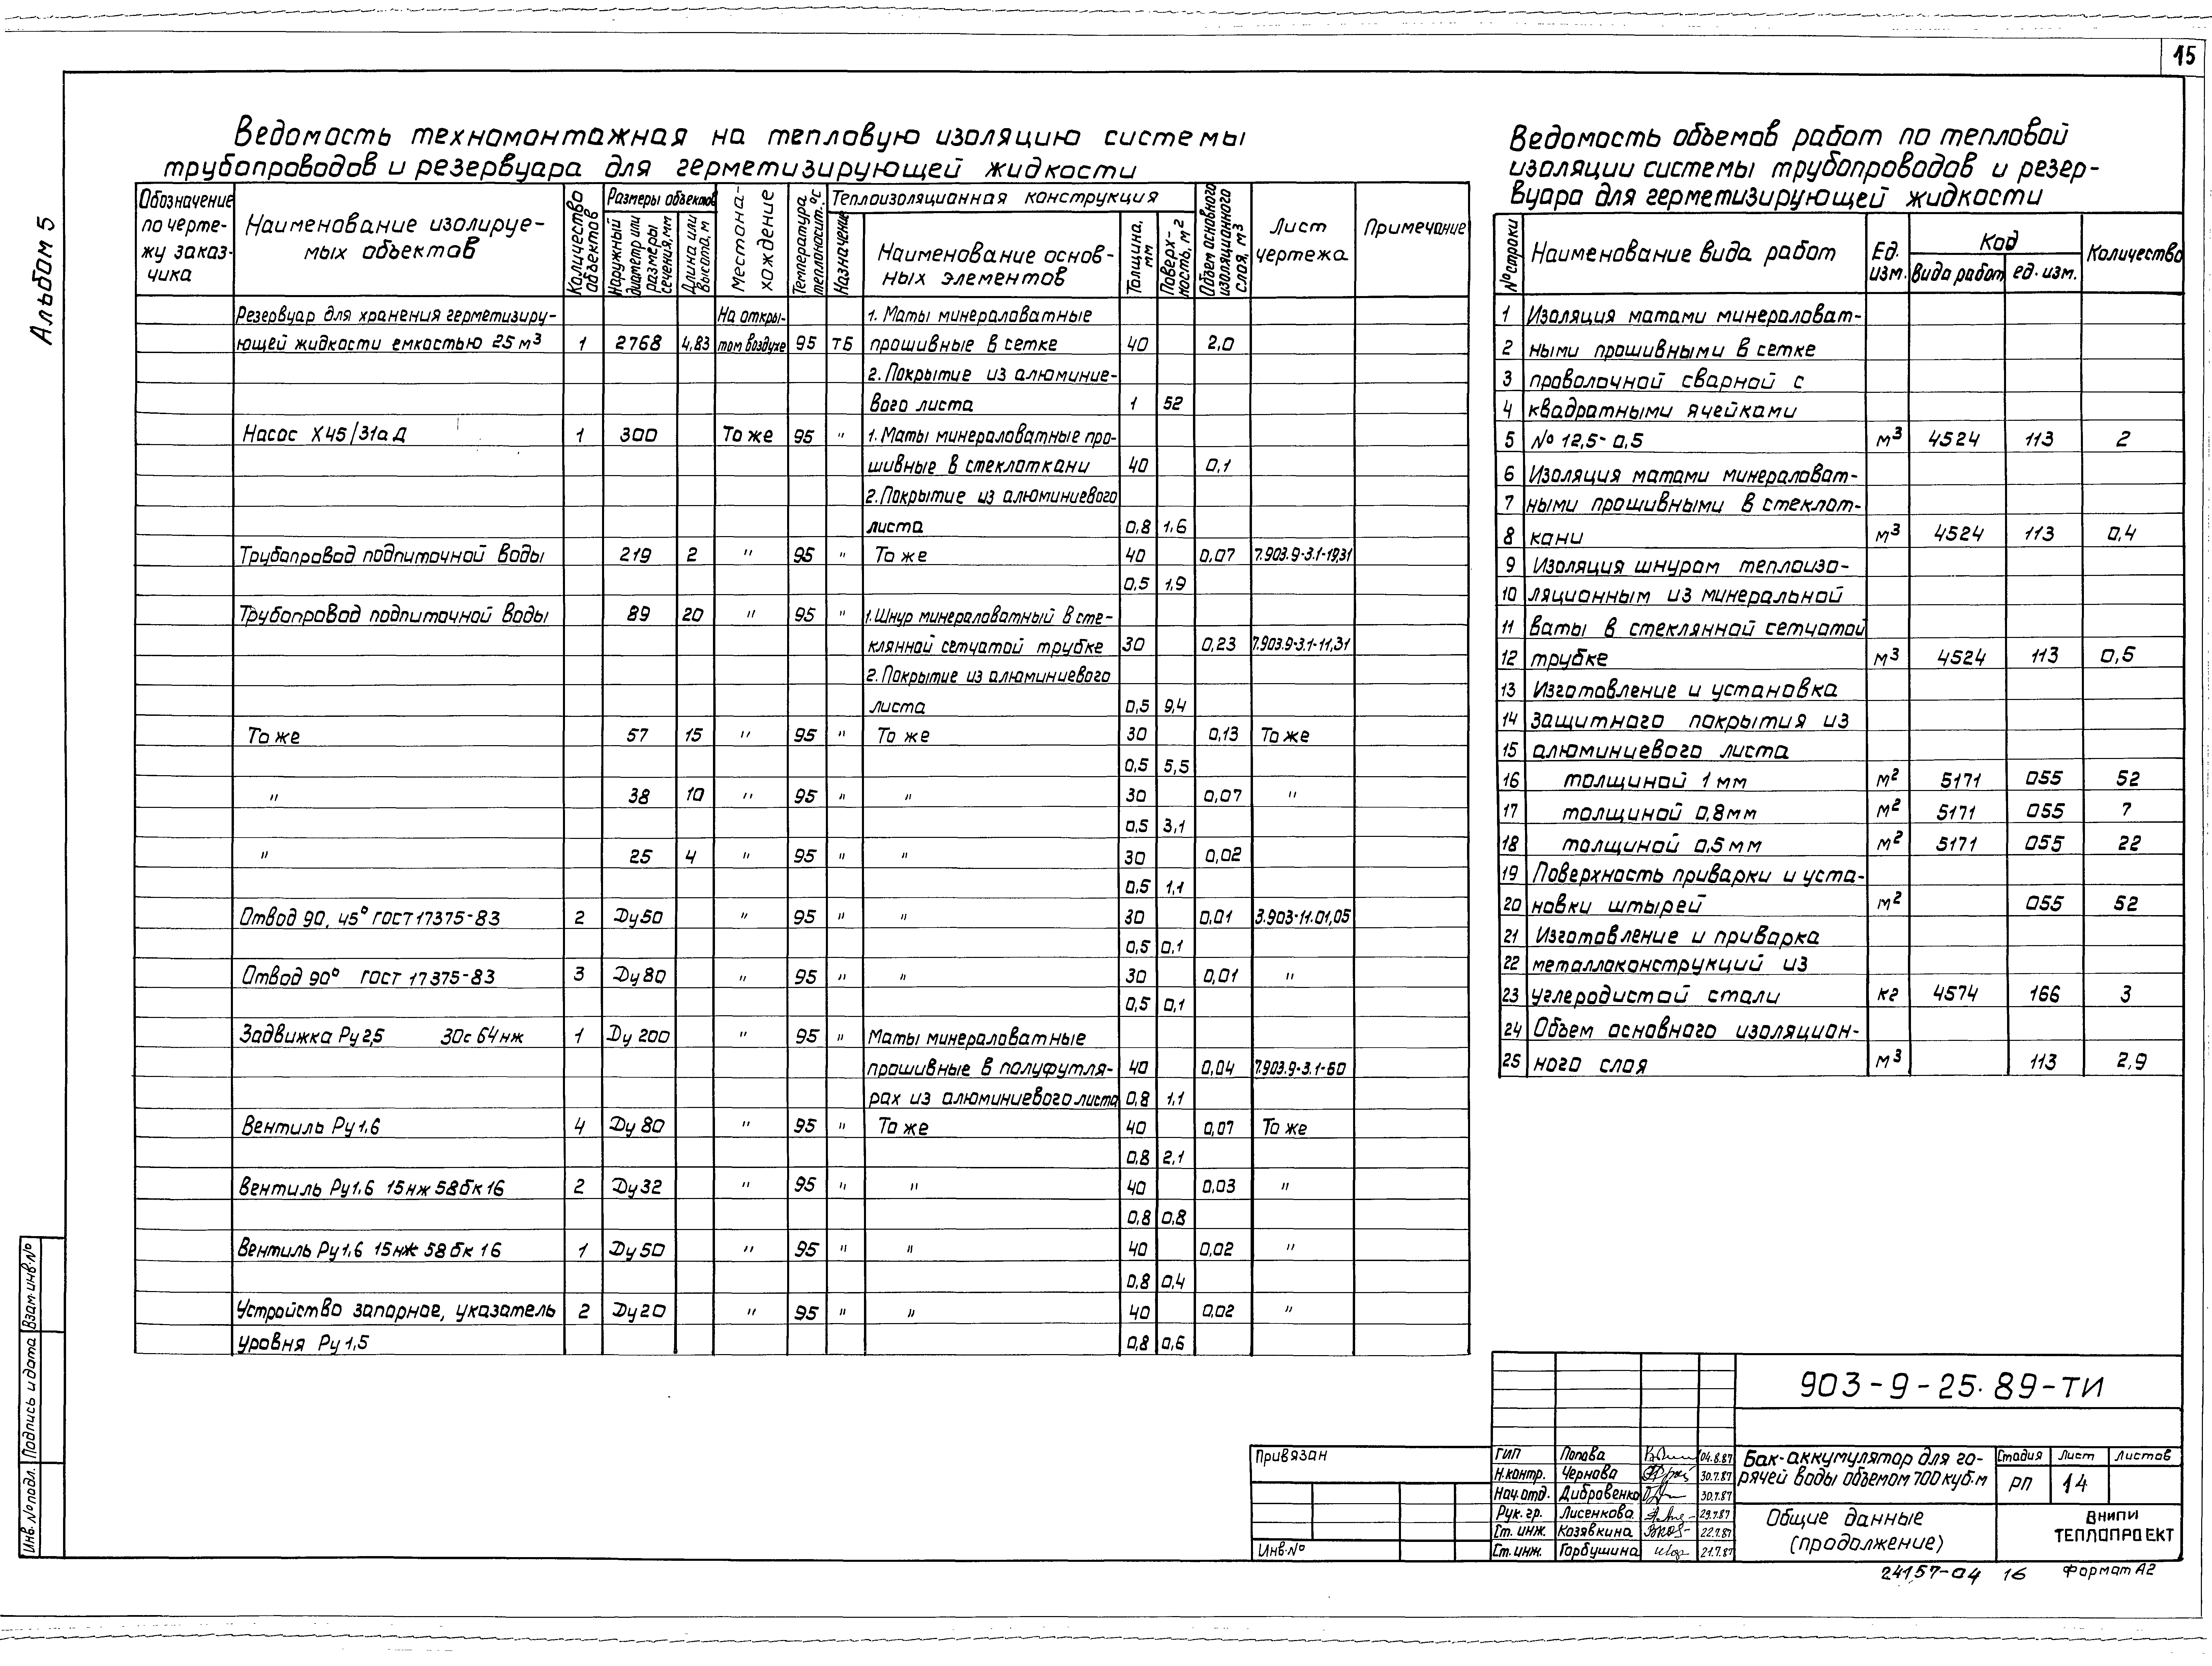 15
Альбом 5
Ведомость техномонтажная на тепловую изоляцию системы
трубопроводов и резервуара для герметизирующей жидкости
Обозначение по чертежу заказчика | Наименование изолируемых объектов | Количество объектов | Размеры объектов | Наружный диаметр или размеры сечения, мм | Длина или высота, м | Местонахождение | Температура теплоносит. °С | Теплоизоляционная конструкция | Назначение | Наименование основных элементов | Толщина, мм | Поверхность, м² | Объем основного изоляционного слоя, м³ | Лист чертежа | Примечание
Резервуар для хранения герметизиру- На откры- 1. Маты минераловатные
ющей жидкости емкостью 25 м³ 1 2768 4,83 том воздухе 95 ТБ прошивные в сетке 40 2,0
2. Покрытие из алюминие-
вого листа 1 52
Насос Х45/31а Д 1 300 То же 95 " 1. Маты минераловатные про-
шивные в стеклоткани 40 0,1
2. Покрытие из алюминиевого
листа 0,8 1,6
Трубопровод подпиточной воды 219 2 " 95 " То же 40 0,07 7.903.9-3.1-19,31
0,5 1,9
Трубопровод подпиточной воды 89 20 " 95 " 1. Шнур минераловатный в сте-
клянной сетчатой трубке 30 0,23 7.903.9-3.1-11,31
2. Покрытие из алюминиевого
листа 0,5 9,4
То же 57 15 " 95 " То же 30 0,13 То же
0,5 5,5
" 38 10 " 95 " " 30 0,07 "
0,5 3,1
" 25 4 " 95 " " 30 0,02
0,5 1,1
Отвод 90, 45° ГОСТ 17375-83 2 Ду50 " 95 " " 30 0,01 3.903-11.01,05
0,5 0,1
Отвод 90° ГОСТ 17375-83 3 Ду80 " 95 " " 30 0,01 "
0,5 0,1
Задвижка Ру2,5 30с 64нж 1 Ду 200 " 95 " Маты минераловатные
прошивные в полуфутля- 40 0,04 7.903.9-3.1-60
рах из алюминиевого листа 0,8 1,1
Вентиль Ру1,6 4 Ду 80 " 95 " То же 40 0,07 То же
0,8 2,1
Вентиль Ру1,6 15нж 58бк16 2 Ду32 " 95 " " 40 0,03 "
0,8 0,8
Вентиль Ру1,6 15нж 58бк 16 1 Ду50 " 95 " " 40 0,02 "
0,8 0,4
Устройство запорное, указатель 2 Ду20 " 95 " " 40 0,02 "
уровня Ру 1,5 0,8 0,6
Ведомость объемов работ по тепловой
изоляции системы трубопроводов и резер-
вуара для герметизирующей жидкости
№ строки | Наименование вида работ | Ед. изм. | Код | Вида работ | ед. изм. | Количество
1 Изоляция матами минераловат-
2 ными прошивными в сетке
3 проволочной сварной с
4 квадратными ячейками
5 № 12,5-0,5 м³ 4524 113 2
6 Изоляция матами минераловат-
7 ными прошивными в стеклот-
8 кани м³ 4524 113 0,4
9 Изоляция шнуром теплоизо-
10 ляционным из минеральной
11 ваты в стеклянной сетчатой
12 трубке м³ 4524 113 0,5
13 Изготовление и установка
14 защитного покрытия из
15 алюминиевого листа
16 толщиной 1 мм м² 5171 055 52
17 толщиной 0,8мм м² 5171 055 7
18 толщиной 0,5мм м² 5171 055 22
19 Поверхность приварки и уста-
20 новки штырей м² 055 52
21 Изготовление и приварка
22 металлоконструкций из
23 углеродистой стали кг 4574 166 3
24 Объем основного изоляцион-
25 ного слоя м³ 113 2,9
903-9-25.89-ТИ
Привязан
Инв. №
ГИП Попова 04.8.87
Н.контр. Чернова 30.7.87
Нач.отд. Дибровенко 30.7.87
Рук. гр. Лисенкова 29.7.87
Ст. инж. Козявкина 22.7.87
Ст. инж. Горбушина 21.7.87
Бак-аккумулятор для го-
рячей воды объемом 700 куб.м
Стадия Лист Листов
РП 14
Общие данные
(продолжение)
ВНИПИ
ТЕПЛОПРОЕКТ
24157-04 16 Формат А2
Инв. № подл. Подпись и дата Взам.инв.№